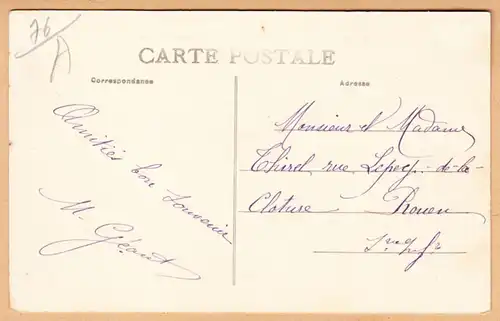 76
CARTE POSTALE
Correspondance
Adresse
Amitiés bon souvenir
M. Géant
Monsieur et Madame
Thirel rue Lepecq-de-la-
Cloture Rouen